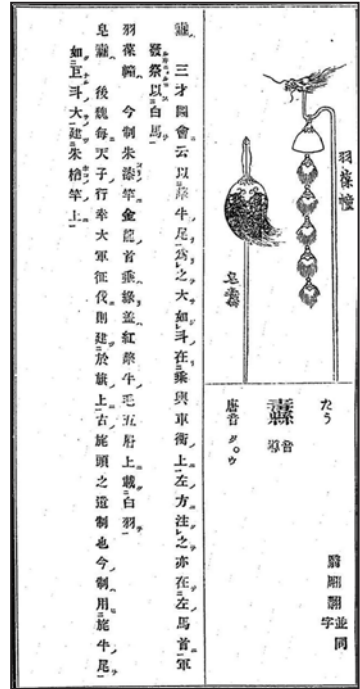 羽葆幢
皂纛
たう
纛 音導
唐音 タ゜ウ
並同字
纛 三才圖會云以犛牛尾爲之大如斗在乘輿車衡上左方注之亦在左馬首軍
發祭以白馬
羽葆幢 今制朱漆竿金龍首垂綠蓋紅犛牛毛五層上戴白羽
皂纛 後魏每天子行幸大軍征伐則建於旗上古旄頭之遺制也今制用旄牛尾
如巨斗大建朱槍竿上